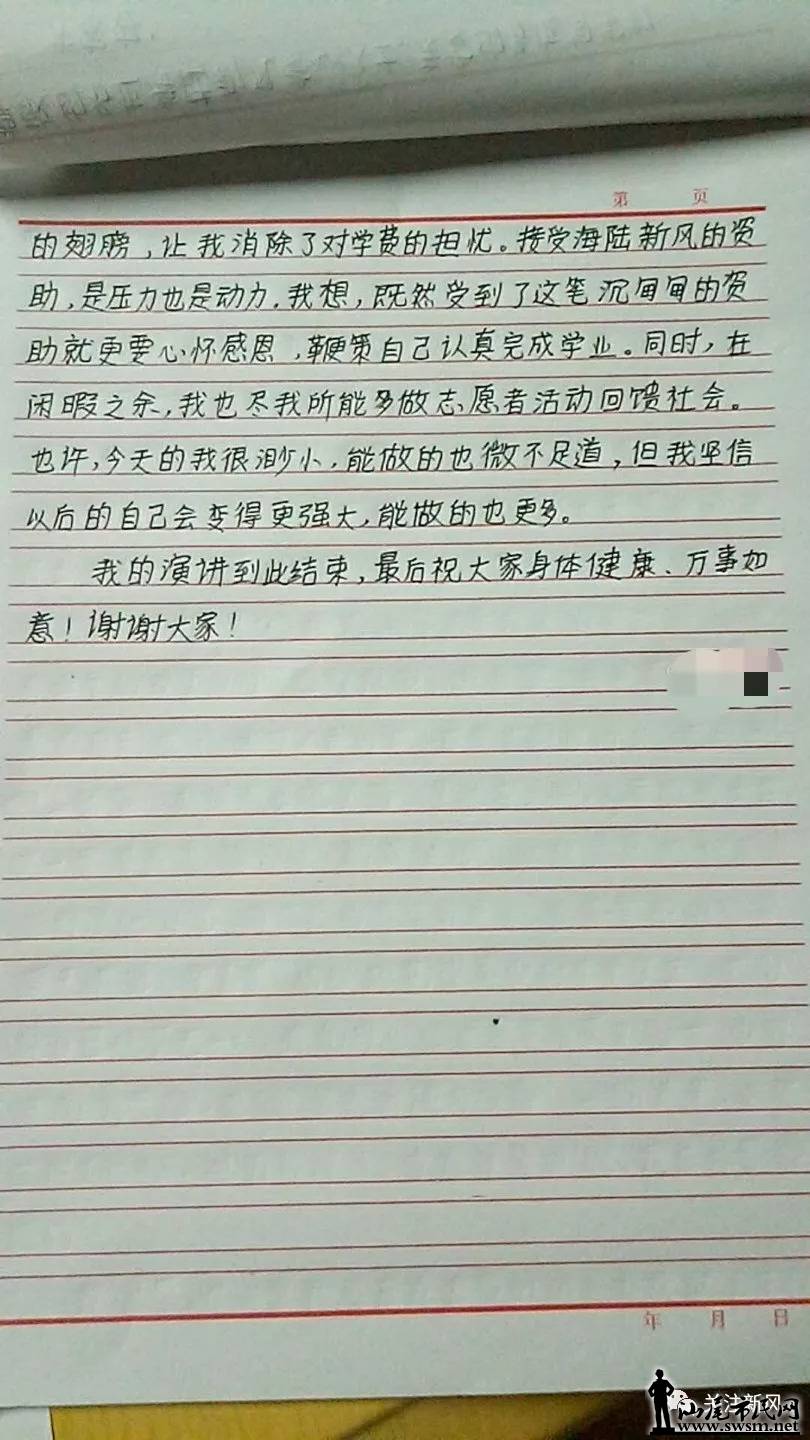 第 页
的翅膀,让我消除了对学费的担忧。接受海陆新风的资
助,是压力也是动力.我想,既然受到了这笔沉甸甸的资
助就更要心怀感恩,鞭策自己认真完成学业。同时,在
闲暇之余,我也尽我所能多做志愿者活动回馈社会。
也许,今天的我很渺小,能做的也微不足道,但我坚信
以后的自己会变得更强大,能做的也更多。
我的演讲到此结束,最后祝大家身体健康、万事如
意!谢谢大家!
年 月 日
关注新风
汕尾市民网
www.swsm.net